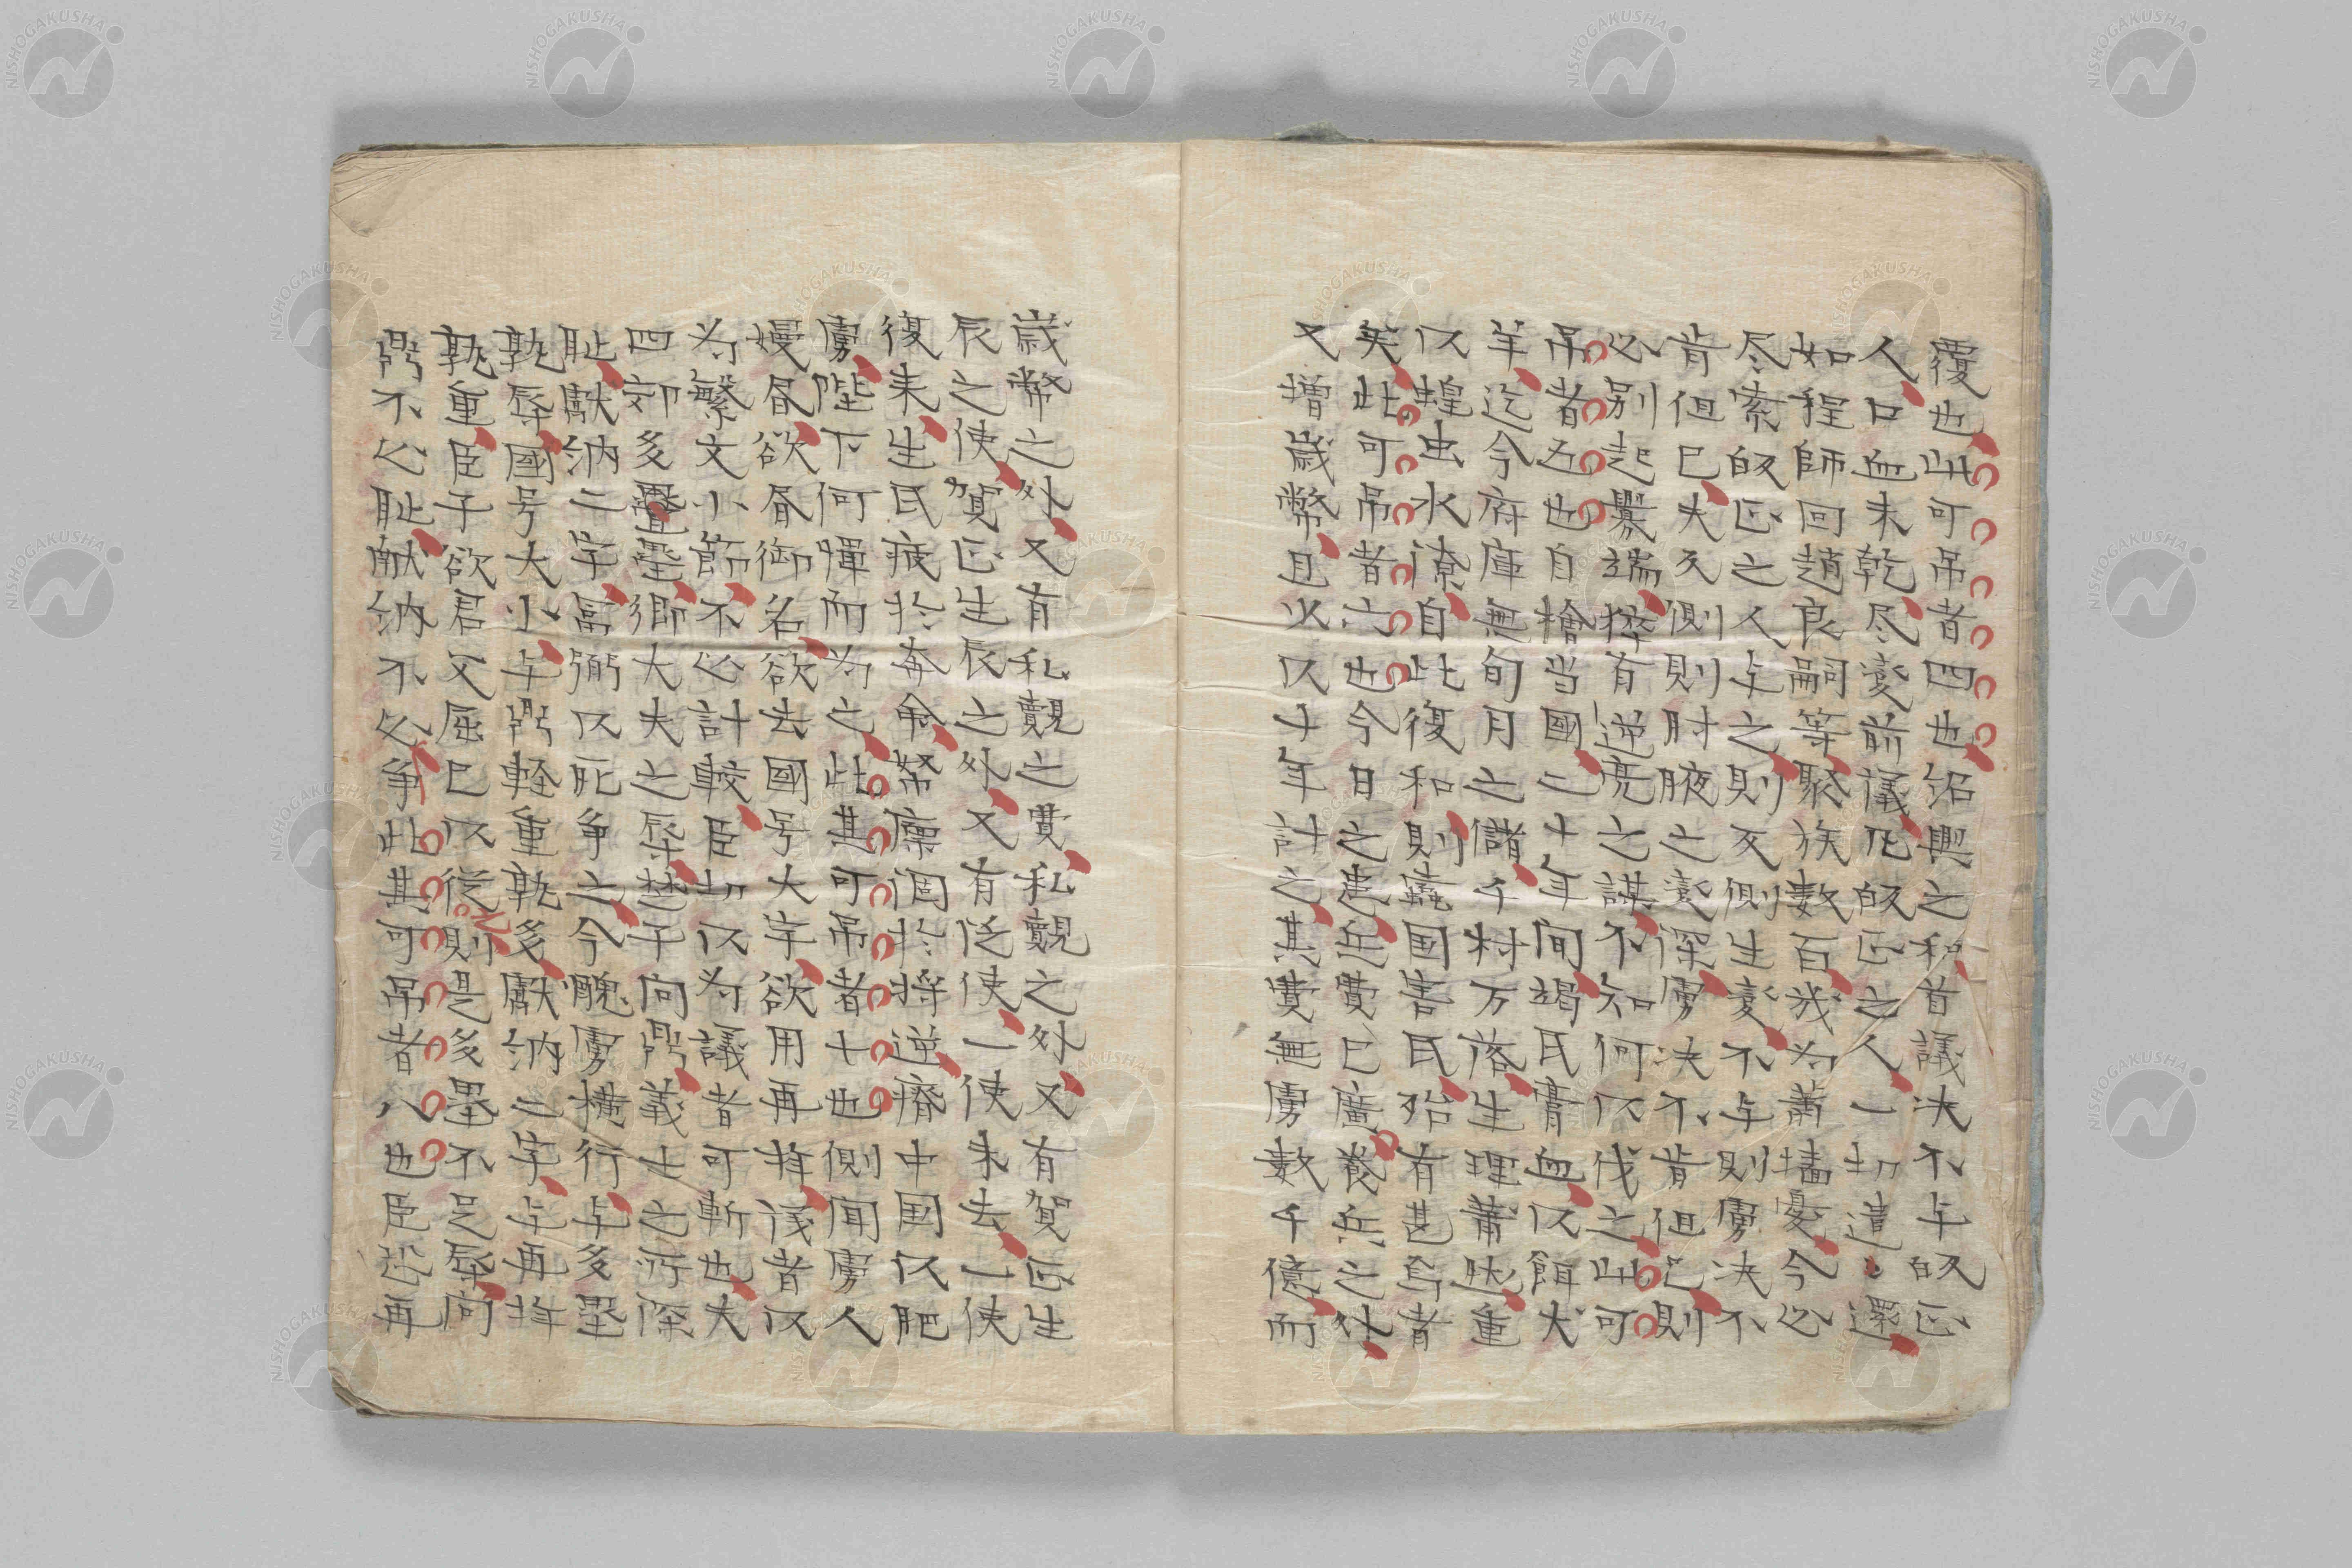 覆也此可吊者四也紹興之和首議决不与皈正
人口血未乾尽変前議凡皈正之人一切遣還
如程師回趙良嗣等聚族數百㡬为蕭墻憂今必
尽索皈正之人与之則反側生変不与則虜决不
肯但已夫反側則肘腋之変深虜决不肯但已則
必别起釁端猝有逆亮之謀不知何以伐之此可
吊者五也自檜当國二十年間竭民膏血以餌犬
羊迄今府庫無旬月之儲千村万落生理蕭然重
以蝗虫水潦自此復和則蠧国害民殆有甚焉者
矣此可吊者六也今日之患兵費已廣養兵之外
又増歳幣且少以十年計之其費無虜数千億而
歳幣之外又有私覿之費私覿之外又有賀正生
辰之使賀正生辰之外又有泛使一使未去一使
復来生民疲於奔命帑廩涸於将迎瘠中国以肥
虜陛下何憚而为之此其可吊者七也側聞虜人
嫚昬欲昬御名欲去國号大字欲用再拝議者以
为繁文小節不必計較臣切以为議者可斬也夫
四郊多壘壘卿大夫之辱楚子问鼎義士之所深
耻獻納二字冨弼以死争之今醜虜横行与多壘
孰辱國号大小与鼎軽重孰多獻納之字与再拝
孰重臣子欲君父屈己以從之則是多壘不足辱问
鼎不必耻献納不必争此其可吊者八也臣恐再